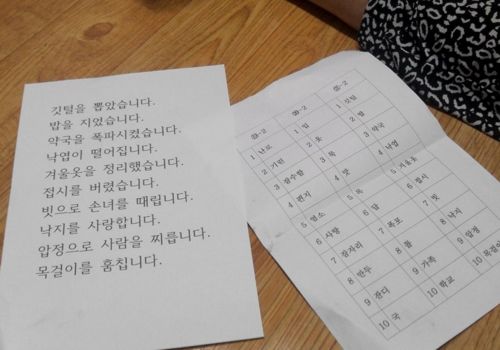 깃털을 뽑았습니다.
밥을 지었습니다.
약국을 폭파시켰습니다.
낙엽이 떨어집니다.
겨울옷을 정리했습니다.
접시를 버렸습니다.
빗으로 손녀를 때립니다.
낙지를 사랑합니다.
압정으로 사람을 찌릅니다.
목걸이를 훔칩니다.
1 난로 1 입 1 깃털
2 기린 2 옷 2 밥
3 잠수함 3 3 약국
4 편지 4 4 낙엽
5 염소 5 5 겨울옷
6 사탕 6 답 6 접시
7 잠자리 7 폭포 7 빗
8 만두 8 풀 8 낙지
9 잔디 9 가족 9 압정
10 국 10 학교 10 목걸이